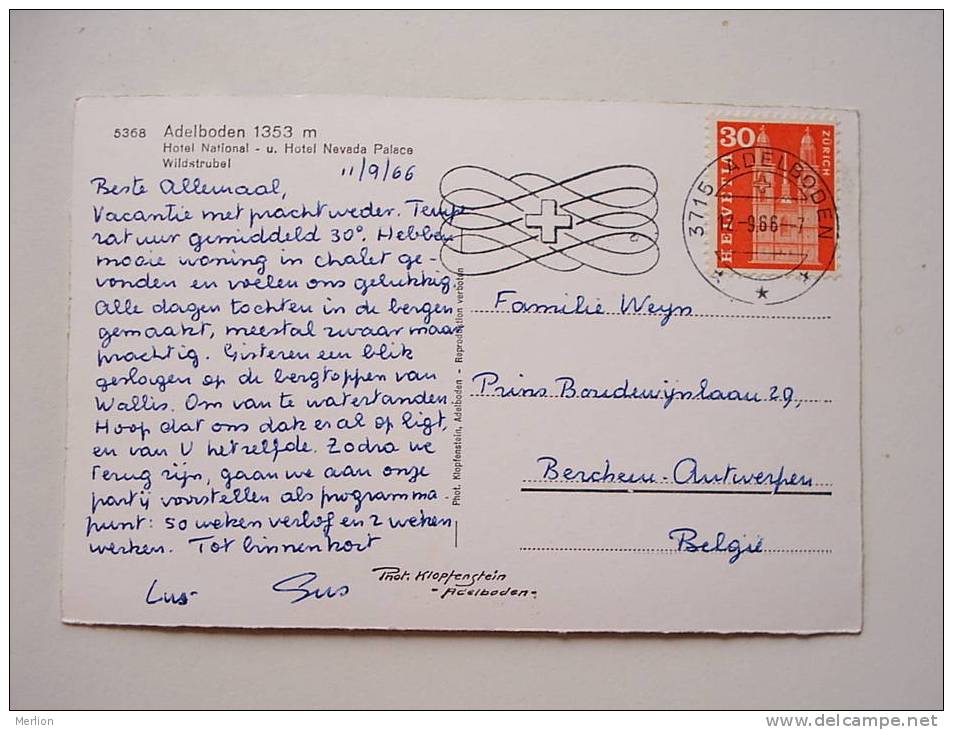 5368 Adelboden 1353 m
Hotel National - u. Hotel Nevada Palace
Wildstrubel
11/9/66
Beste Allemaal,
Vacantie met prachtweder. Tempe
ratuur gemiddeld 30°. Hebben
mooie woning in chalet ge-
vonden en voelen ons gelukkig.
Alle dagen tochten in de bergen
gemaakt, meestal zwaar maar
prachtig. Gisteren een blik
geslagen op de bergtoppen van
Wallis. Om van te watertanden.
Hoop dat ons dak er al op ligt,
en van U hetzelfde. Zodra we
terug zijn, gaan we aan onze
partij voorstellen als programma-
punt: 50 weken verlof en 2 weken
werken. Tot binnenkort
Lus Sus
Phot. Klopfenstein, Adelboden - Reproduction verboten
Phot. Klopfenstein
- Adelboden -
30
HELVETIA
ZÜRICH
3715 ADELBODEN
12-9.66-7
Familie Weyn
Prins Boudewijnlaan 29,
Berchem-Antwerpen
België
Merlion
www.delcampe.net